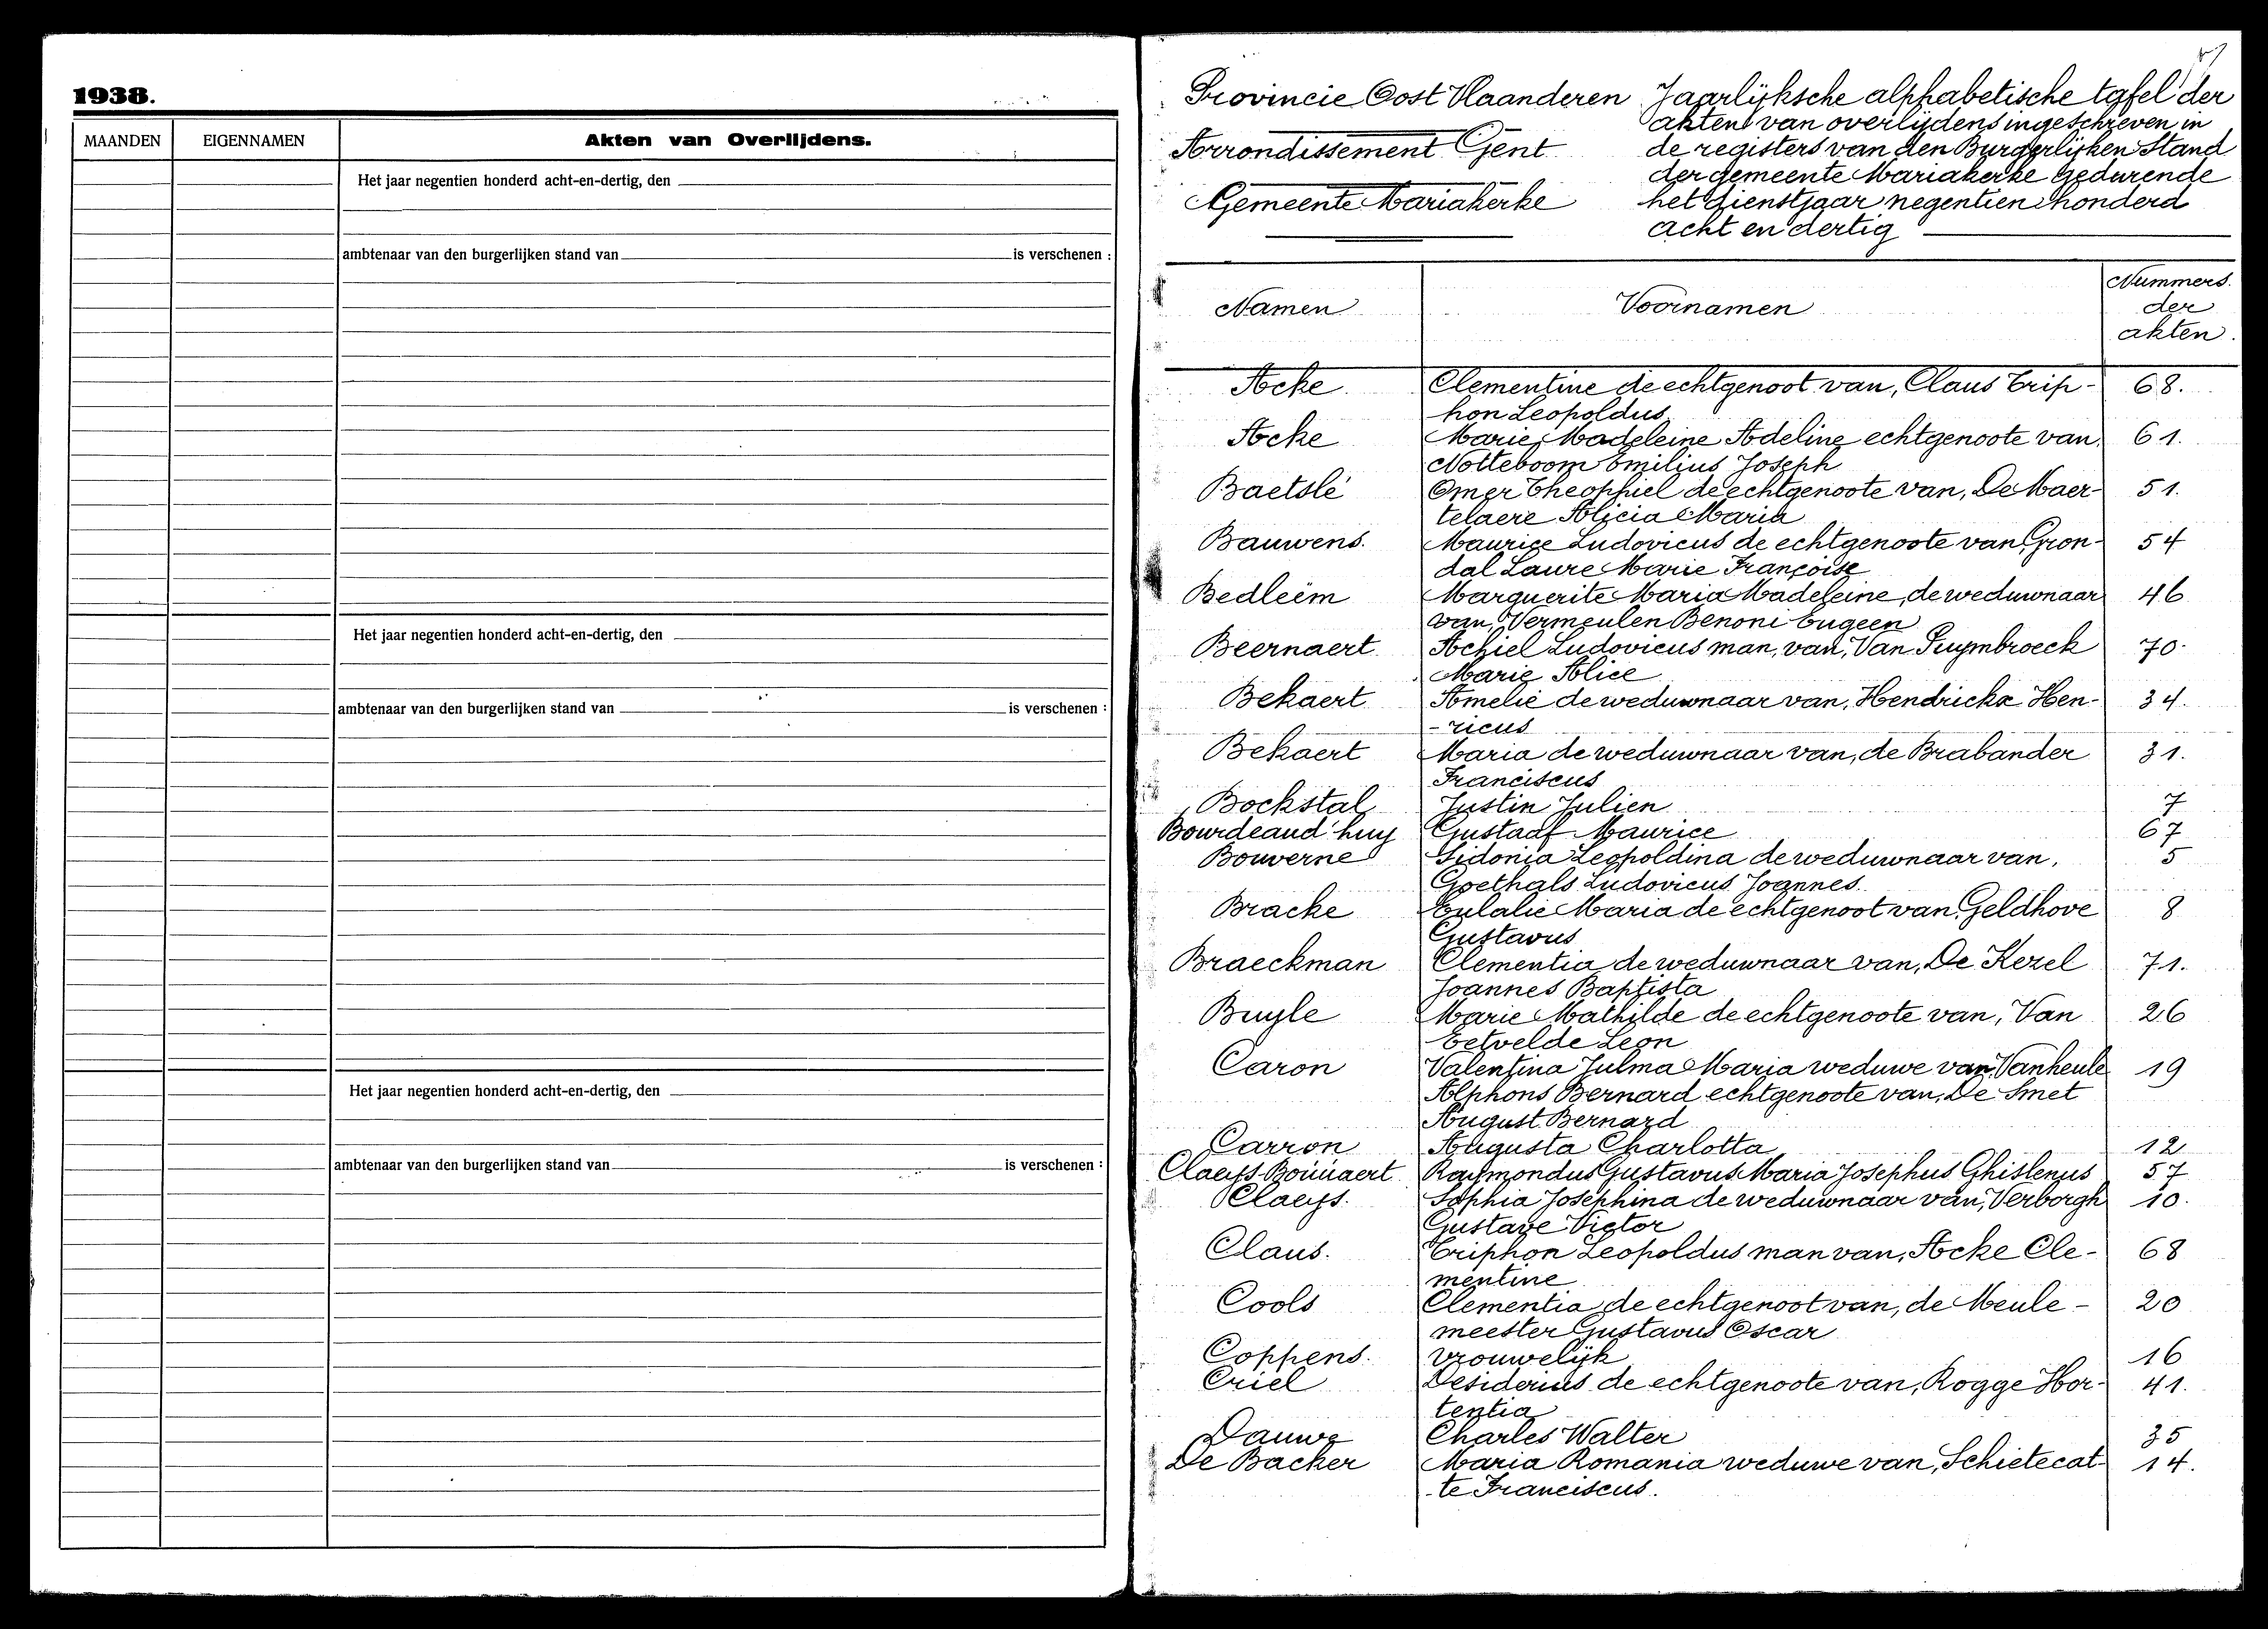 1938.
MAANDEN EIGENNAMEN Akten van Overlijdens.
Het jaar negentien honderd acht-en-dertig, den
ambtenaar van den burgerlijken stand van is verschenen :
Het jaar negentien honderd acht-en-dertig, den
ambtenaar van den burgerlijken stand van is verschenen :
Het jaar negentien honderd acht-en-dertig, den
ambtenaar van den burgerlijken stand van is verschenen :
Provincie Oost Vlaanderen
Arrondissement Gent
Gemeente Mariakerke
Jaarlijksche alphabetische tafel der
akten van overlijdens ingeschreven in
de registers van den Burgerlijken Stand
der gemeente Mariakerke gedurende
het dienstjaar negentien honderd
acht en dertig
Namen Voornamen Nummers
der
akten.
Acke Clementine de echtgenoot van, Claus Trip- 68.
hon Leopoldus
Acke Marie Madeleine Adeline echtgenoote van 61.
Notteboom Emilius Joseph
Baetslé Omer Theophiel de echtgenoote van, De Maer- 51.
telaere Alicia Maria
Bauwens. Maurice Ludovicus de echtgenoote van Gron- 54
dal Laure Marie Françoise
Bedleém Marguerite Maria Madeleine, de weduwnaar 46
van, Vermeulen Benoni Eugeen
Beernaert Achiel Ludovicus man, van, Van Puymbroeck 70.
Marie Alice
Bekaert Amelie de weduwnaar van, Hendrickx Hen- 34.
-ricus
Bekaert Maria de weduwnaar van, de Brabander 31.
Franciscus
Bockstal Justin Julien 7
Bourdeaud'huy Gustaaf Maurice 67
Bouverne Sidonia Leopoldina de weduwnaar van, 5
Goethals Ludovicus Joannes.
Bracke Eulalie Maria de echtgenoot van, Geldhove 8
Gustavus
Braeckman Clementia de weduwnaar van, De Kezel 71.
Joannes Baptista
Buyle Marie Mathilde de echtgenoote van, Van 26
Eetvelde Leon
Caron Valentina Julma Maria weduwe van, Vanheule 19
Alphons Bernard echtgenoote van, De Smet
August Bernard
Carron Augusta Charlotta 12
Claeys-Boúúaert Raymondus Gustavus Maria Josephus Ghislenus 57
Claeys. Sophia Josephina de weduwnaar van, Verborgh 10.
Gustave Victor
Claus. Triphon Leopoldus man van, Acke Cle- 68
mentine
Cools Clementia de echtgenoot van, de Meule- 20
meester Gustavus Oscar
Coppens. vrouwelijk 16
Criel Desiderius de echtgenoote van, Rogge Hor- 41.
tentia
Dauwe Charles Walter 35
De Backer Maria Romania weduwe van, Schietecat- 14.
-te Franciscus.